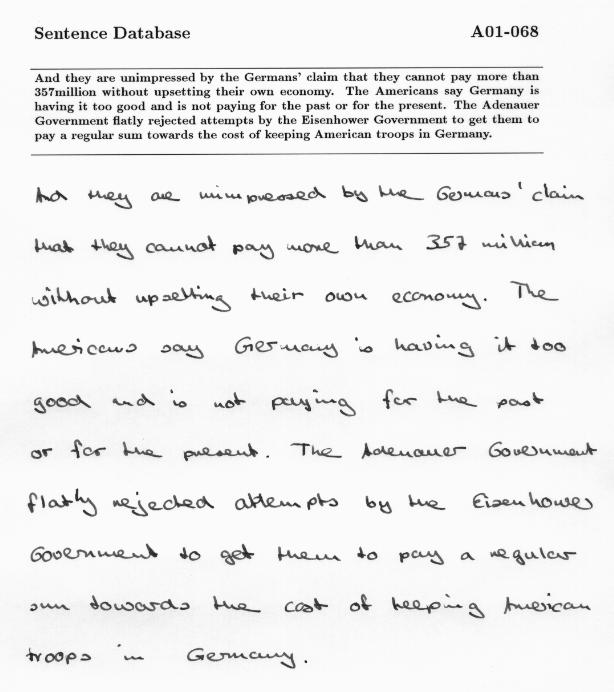 Sentence Database A01-068
And they are unimpressed by the Germans' claim that they cannot pay more than
357million without upsetting their own economy. The Americans say Germany is
having it too good and is not paying for the past or for the present. The Adenauer
Government flatly rejected attempts by the Eisenhower Government to get them to
pay a regular sum towards the cost of keeping American troops in Germany.
And they are unimpressed by the Germans' claim
that they cannot pay more than 357 million
without upsetting their own economy. The
Americans say Germany is having it too
good and is not paying for the past
or for the present. The Adenauer Government
flatly rejected attempts by the Eisenhower
Government to get them to pay a regular
sum towards the cost of keeping American
troops in Germany.